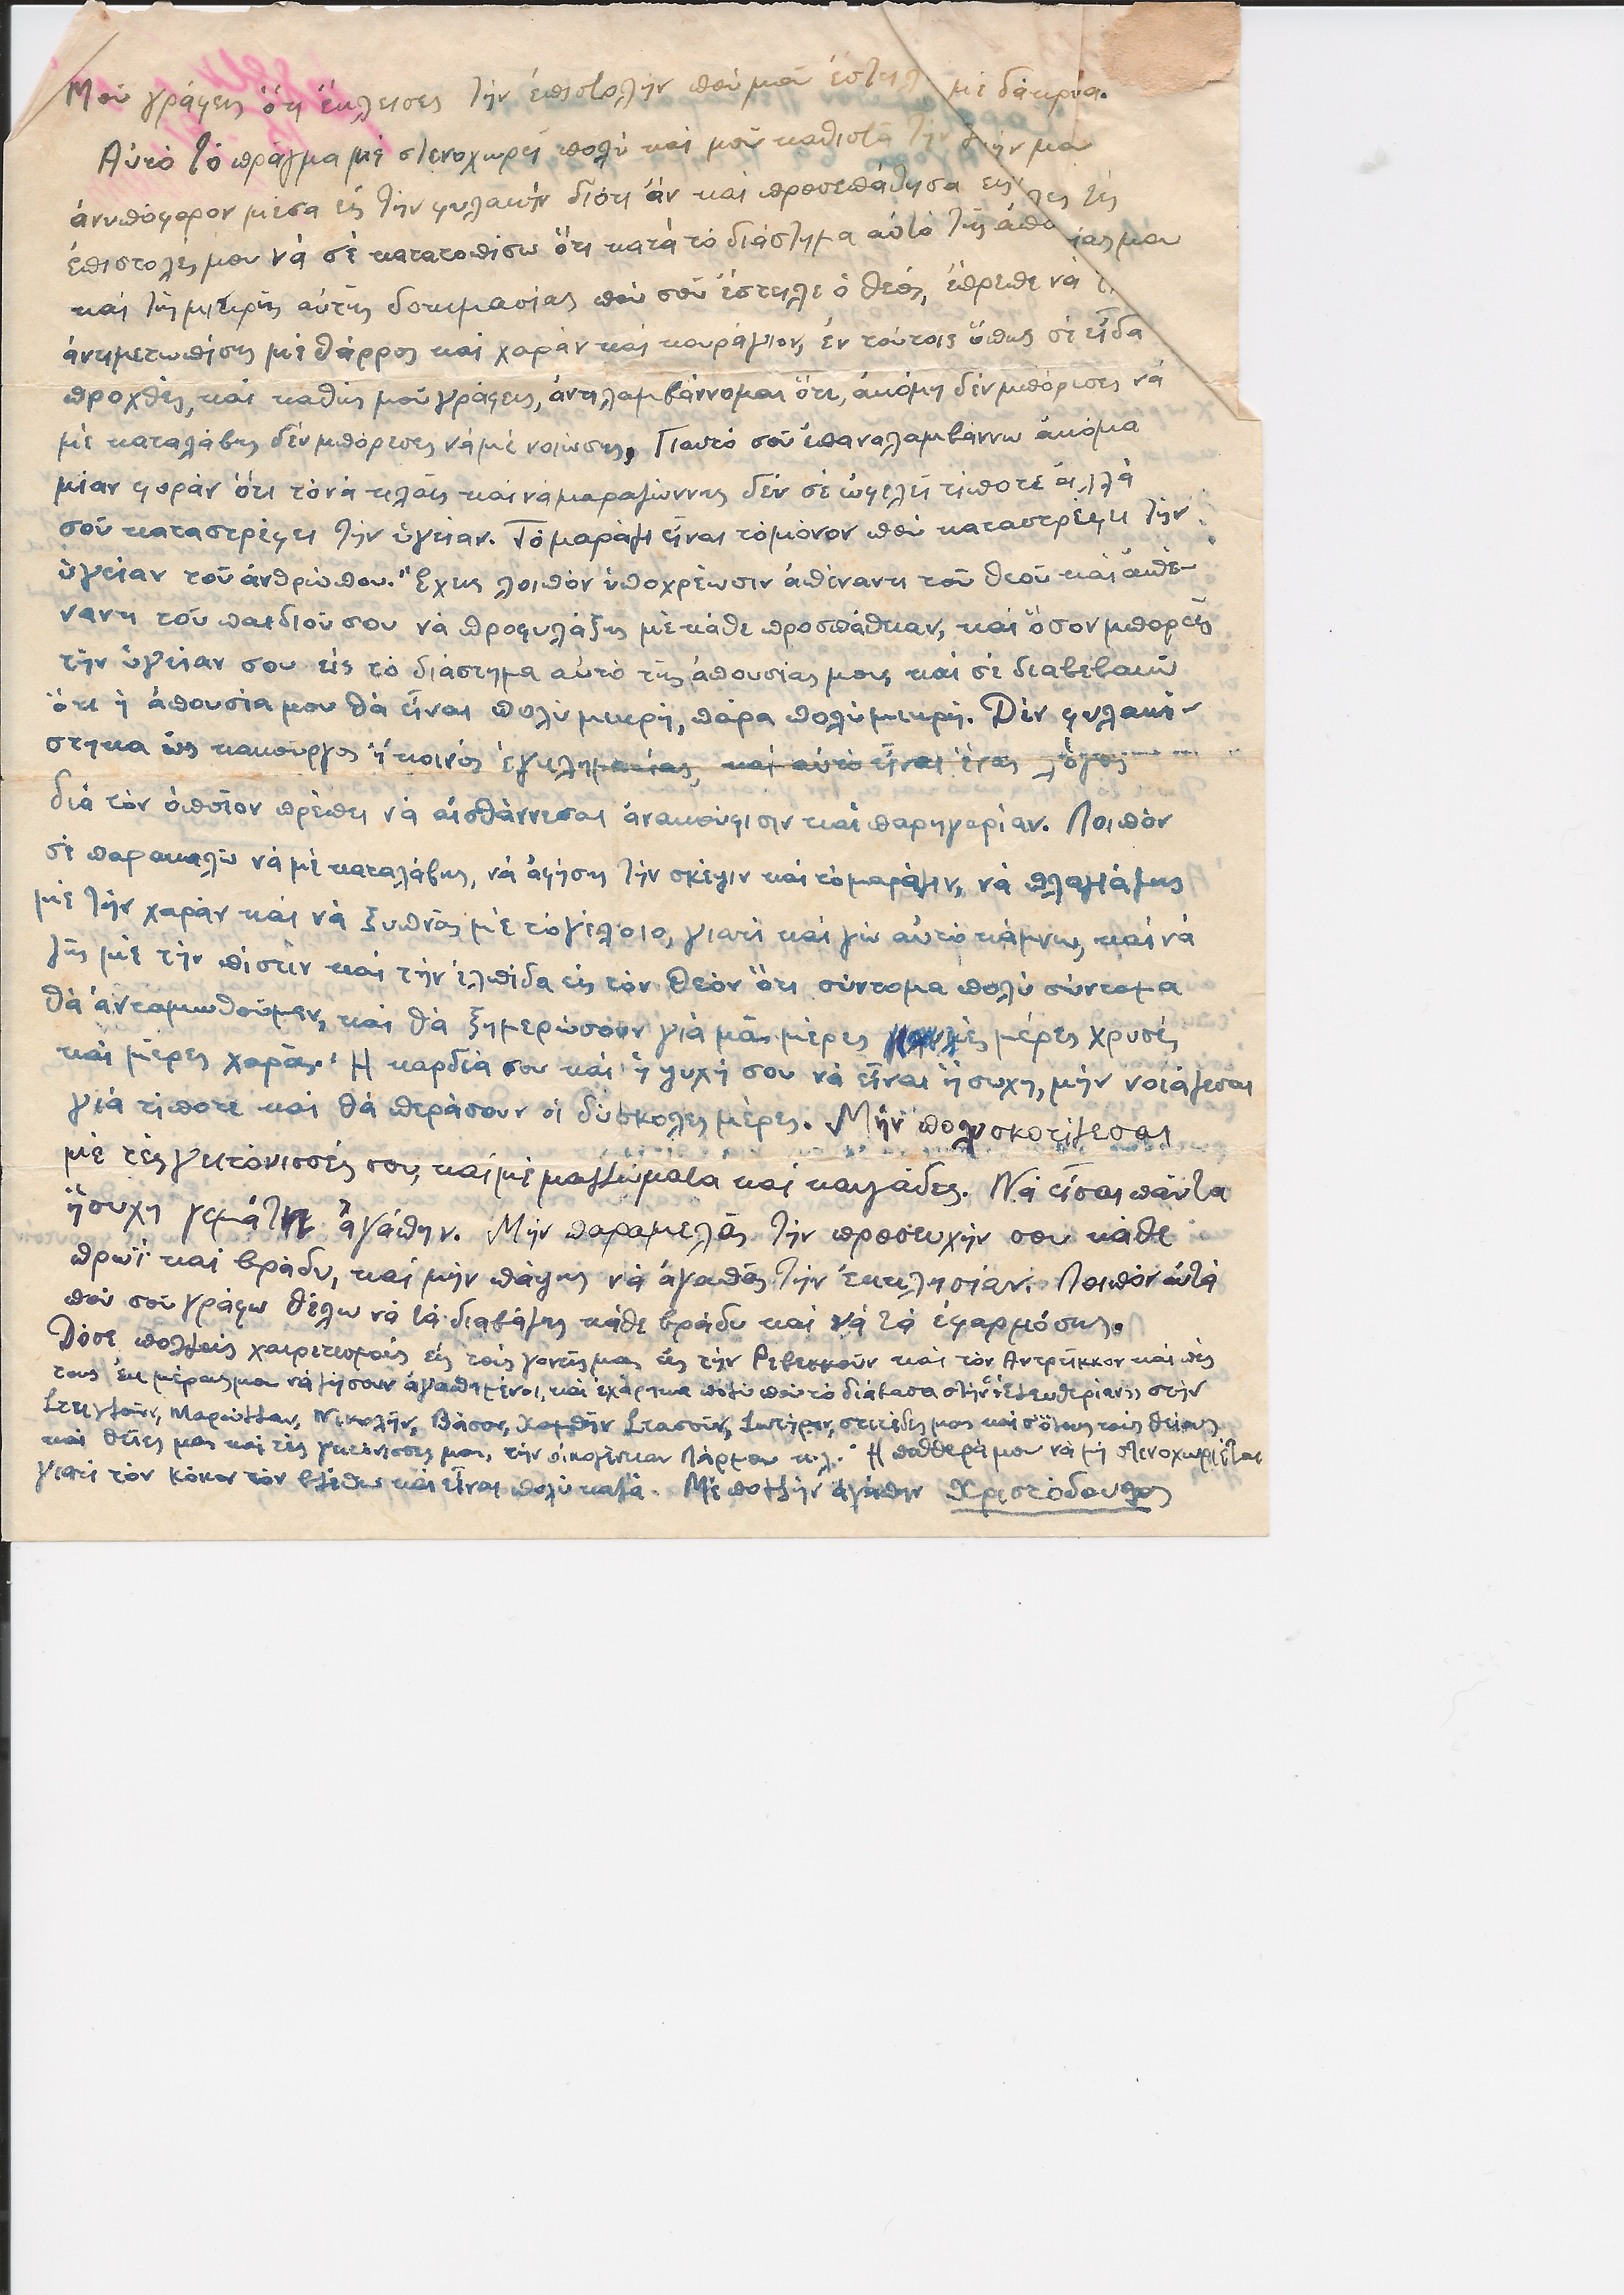 Μοῦ γράφεις ὅτι ἔκλεισες τὴν ἐπιστολὴν ποὺ μοῦ ἔστειλ μὲ δάκρυα.
Αὐτὸ τὸ πρᾶγμα μὲ στενοχωρεῖ πολὺ καὶ μοῦ καθιστᾶ τὴν ζωήν μου
ἀνυπόφορον μέσα εἰς τὴν φυλακὴν διότι ἄν καὶ προσεπάθησα εἰς λες τὲς
ἐπιστολές μου νὰ σὲ κατατοπίσω ὅτι κατὰ τὸ διάστημα αὐτὸ τῆς ἀπο ίας μου
καὶ τῆς μικρῆς αὐτῆς δοκιμασίας ποὺ σοῦ ἔστειλε ὁ θεός, ἔπρεπε νὰ τ
ἀντιμετωπίσης μὲ θάρρος καὶ χαρὰν καὶ κουράγιον, ἐν τούτοις ὅπως σὲ εἶδα
προχθὲς, καὶ καθὼς μοῦ γράφεις, ἀντιλαμβάννομαι ὅτι, ἀκόμη δὲν μπόρισες νὰ
μὲ καταλάβης δὲν μπόρεσες νὰ μὲ νοιώσης, Γιαυτὸ σοῦ ἐπαναλαμβάννω ἀκόμα
μίαν φορὰν ὅτι τὸ νὰ κλαῖς καὶ νὰ μαραζώννης δὲν σὲ ὠφελεῖ τίποτε ἀλλὰ
σοῦ καταστρέφει τὴν ὑγείαν. Τὸ μαράζι εἶναι τὸ μόνον ποὺ καταστρέφει τὴν
ὑγείαν τοῦ ἀνθρώπου. Ἔχεις λοιπὸν ὑποχρέωσιν ἀπέναντι τοῦ θεοῦ καὶ ἀπέ-
ναντι τοῦ παιδιοῦ σου νὰ προφυλάξης μὲ κάθε προσπάθειαν, καὶ ὅσον μπορεῖς
τὴν ὑγείαν σου εἰς τὸ διάστημα αὐτὸ τῆς ἀπουσίας μου, καὶ σὲ διαβεβαιῶ
ὅτι ἡ ἀπουσία μου θὰ εἶναι πολὺ μικρή, πάρα πολὺ μικρή. Δὲν φυλακί-
στηκα ὡς κακοῦργος ἤ κοινὸς ἐγκληματίας, καὶ αὐτὸ εἶναι ἕνας λόγος
διὰ τὸν ὁποῖον πρέπει νὰ αἰσθάννεσαι ἀνακούφισιν καὶ παρηγορίαν. Λοιπὸν
σὲ παρακαλῶ νὰ μὲ καταλάβης, νὰ ἀφήσης τὴν σκέψιν καὶ τὸ μαράζιν, νὰ πλαγιάζης
μὲ τὴν χαρὰν καὶ νὰ ξυπνᾶς μὲ τὸ γέλοιο, γιατὶ καὶ γὼ αὐτὸ κάμνω, καὶ νὰ
ζῆς μὲ τὴν πίστιν καὶ τὴν ἐλπίδα εἰς τὸν θεὸν ὅτι σύντομα πολὺ σύντομα
θὰ ἀνταμωθοῦμεν, καὶ θὰ ξημερώσουν γιὰ μᾶς μέρες καλὲς μέρες χρυσὲς
καὶ μέρες χαρᾶς. Ἡ καρδιά σου καὶ ἡ ψυχή σου νὰ εἶναι ἥσυχη, μὴν νοιάζεσαι
γιὰ τίποτε καὶ θὰ περάσουν οἱ δύσκολες μέρες. Μὴν πολυσκοτίζεσαι
μὲ τὲς γειτόνισσές σου, καὶ μὲ μαλλώματα καὶ καυγάδες. Νὰ εἶσαι πάντα
ἥσυχη γεμάτη ἀγάπην. Μὴν παραμελᾶς τὴν προσευχήν σου κάθε
πρωῒ καὶ βράδυ, καὶ μὴν πάψης νὰ ἀγαπᾶς τὴν ἐκκλησίαν. Λοιπὸν αὐτὰ
ποὺ σοῦ γράφω θέλω νὰ τὰ διαβάζης κάθε βράδυ καὶ νὰ τὰ ἐφαρμόσης.
Δόσε πολλοὺς χαιρετισμοὺς εἰς τοὺς γονεῖς μας εἰς τὴν Ρεβεκκοῦν καὶ τὸν Ἀντρίκκον καὶ πὲς
τους ἐκ μέρους μου νὰ ζήσουν ἀγαπημένοι, καὶ ἐχάρηκα πολὺ ποὺ τὸ διάβασα στὴν «Ἐλευθερίαν», στὴν
Στελλοῦν, Μαρούλλαν, Νικολῆν, Βάσον, Χαμπῆν Στασοῦν, Σωτήρην, στετέδες μας καὶ σ' ὅλους τοὺς θείους
καὶ θεῖες μας καὶ τὲς γειτόνισσές μας, τὴν οἰκογένειαν Λάρκου κ.λ. Ἡ πεθθερά μου νὰ μὴ στενοχωριέται
γιατὶ τὸν Κόκον τὸν βλέπω καὶ εἶναι πολὺ καλά. Μὲ πολλὴν ἀγάπην Χριστόδουλος